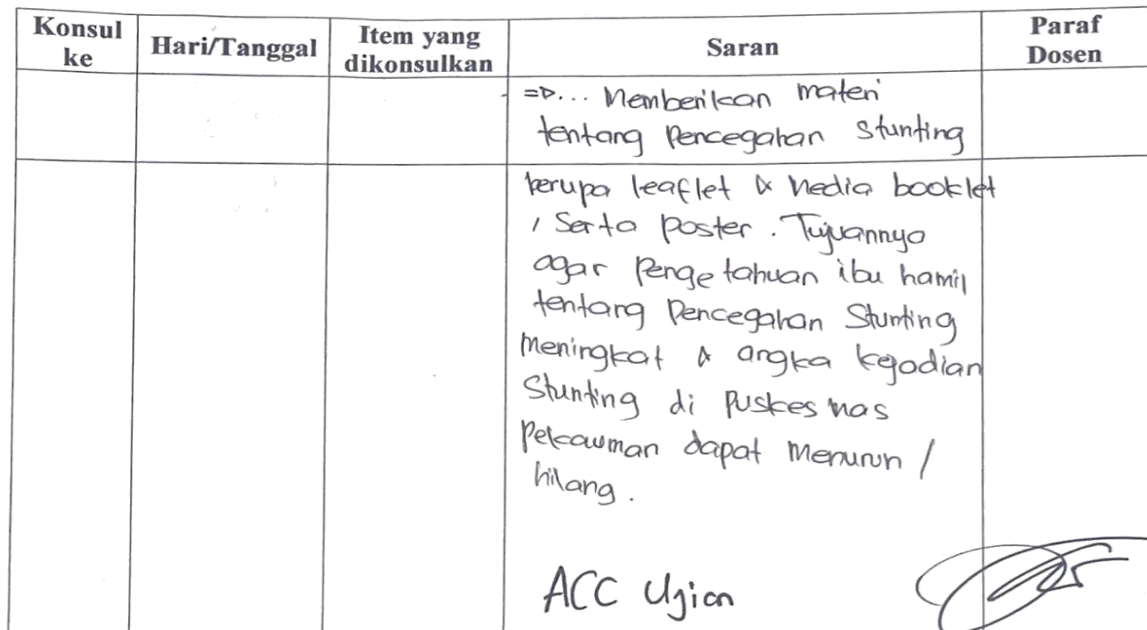 Konsul ke Hari/Tanggal Item yang dikonsulkan Saran Paraf Dosen
=>... Memberikan materi
tentang Pencegahan Stunting
berupa leaflet & Media booklet
, Serta Poster. Tujuannya
agar Pengetahuan ibu hamil
tentang Pencegahan Stunting
Meningkat & angka kejadian
Stunting di Puskesmas
Pekauman dapat Menurun /
hilang.
ACC Ujian